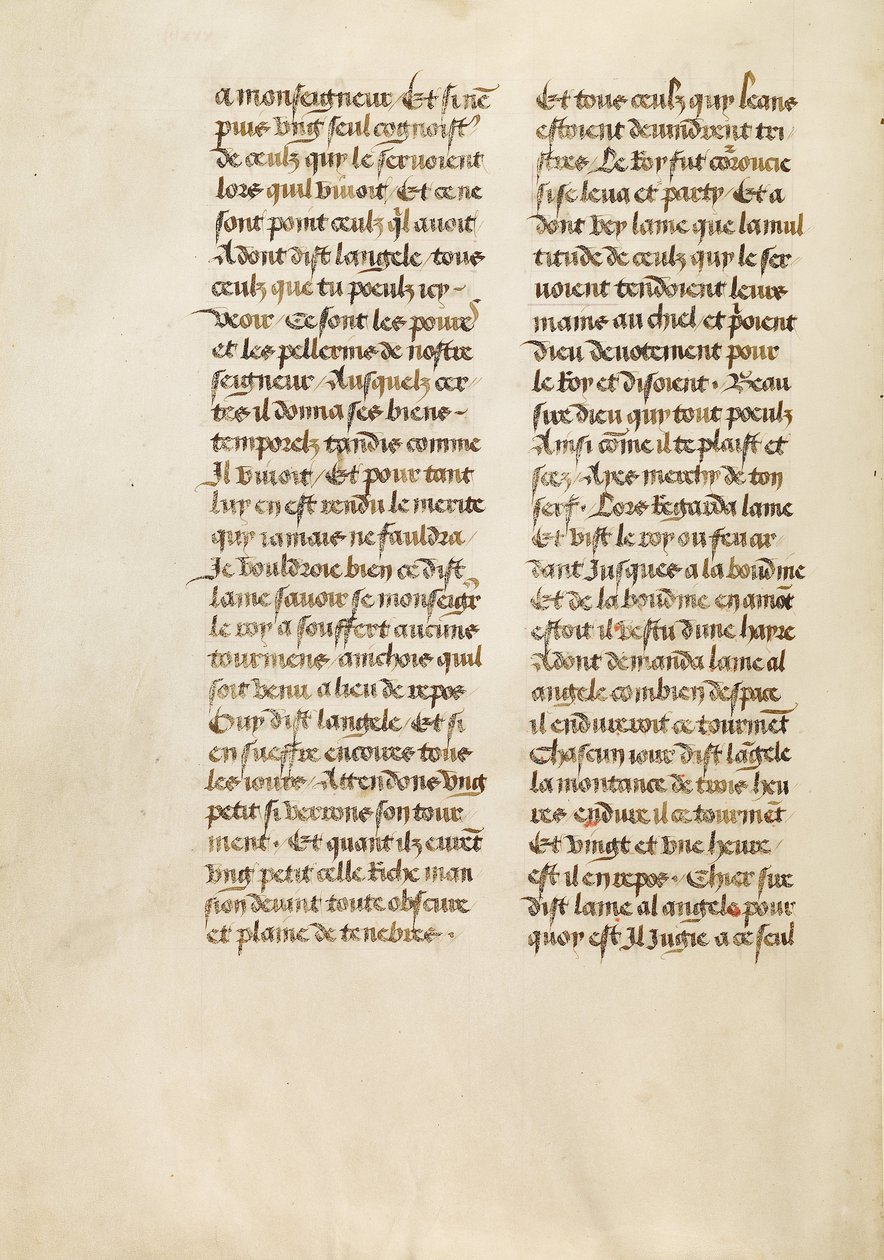 a monseigneur / Et si nē
puis vng seul cognoist
de ceulz quy le seruoient
lors quil viuoit / Et ce ne
sont point ceulz q̄l auoit /
Adont dist langele / tous
ceulz que tu poeulz icy -
veoir / Ce sont les poures
et les pellerins de nostre
seigneur / Ausquelz cer-
tes il donna ses biens -
temporelz tandis comme
Il viuoit / Et pour tant
luy en est rendu le merite
quy iamais ne fauldra /
Je vouldroie bien ce dist
lame sauoir se monseigr̄
le roy a souffert aucuns
tourmens / ainchois quil
soit venu a lieu de repos
Ouy dist langele / Et si
en sueffre encores tous
les iours / Attendons vng
petit si verrons son tour-
ment . Et quant ilz eurēt
vng petit celle Riche man
sion deuint toute obscure
et plaine de tenebres .
Et tous ceulz quy leans
estoient deuindrent tri-
stres / Le Roy fut cōroucie
si se leua et party / Et a
dont vey lame que la mul
titude de ceulz quy le ser-
uoient tendoient leurs
mains au chiel / et p̄oient
dieu deuotement pour
le Roy et disoient . Beau
sire dieu quy tout poeulz
Ainsi cōme il te plaist et
scez / Ayes merchy de ton
serf . Lors Regarda lame
Et vist le roy ou feu ar-
dant Jusques a la boudine
Et de la boudine en amōt
estoit il vestu dune hayre
Adont demanda lame al
angele combien despace
il endureroit ce tourmēt
Chascun iour dist lāgele
la montance de trois heu
res endure il ce tourmēt
Et vingt et vne heure /
est il en repos . Chier sire
dist lame al angele pour
quoy est Il Jugie a ce seul